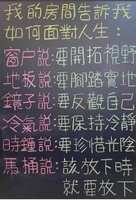 我的房間告訴我
如何面對人生:
窗户說:要開拓視野
地板說:要腳踏實地
鏡子說:要反觀自己
冷氣說:要保持冷靜
時鐘說:要珍惜光陰
馬桶說:該放下時
就要放下